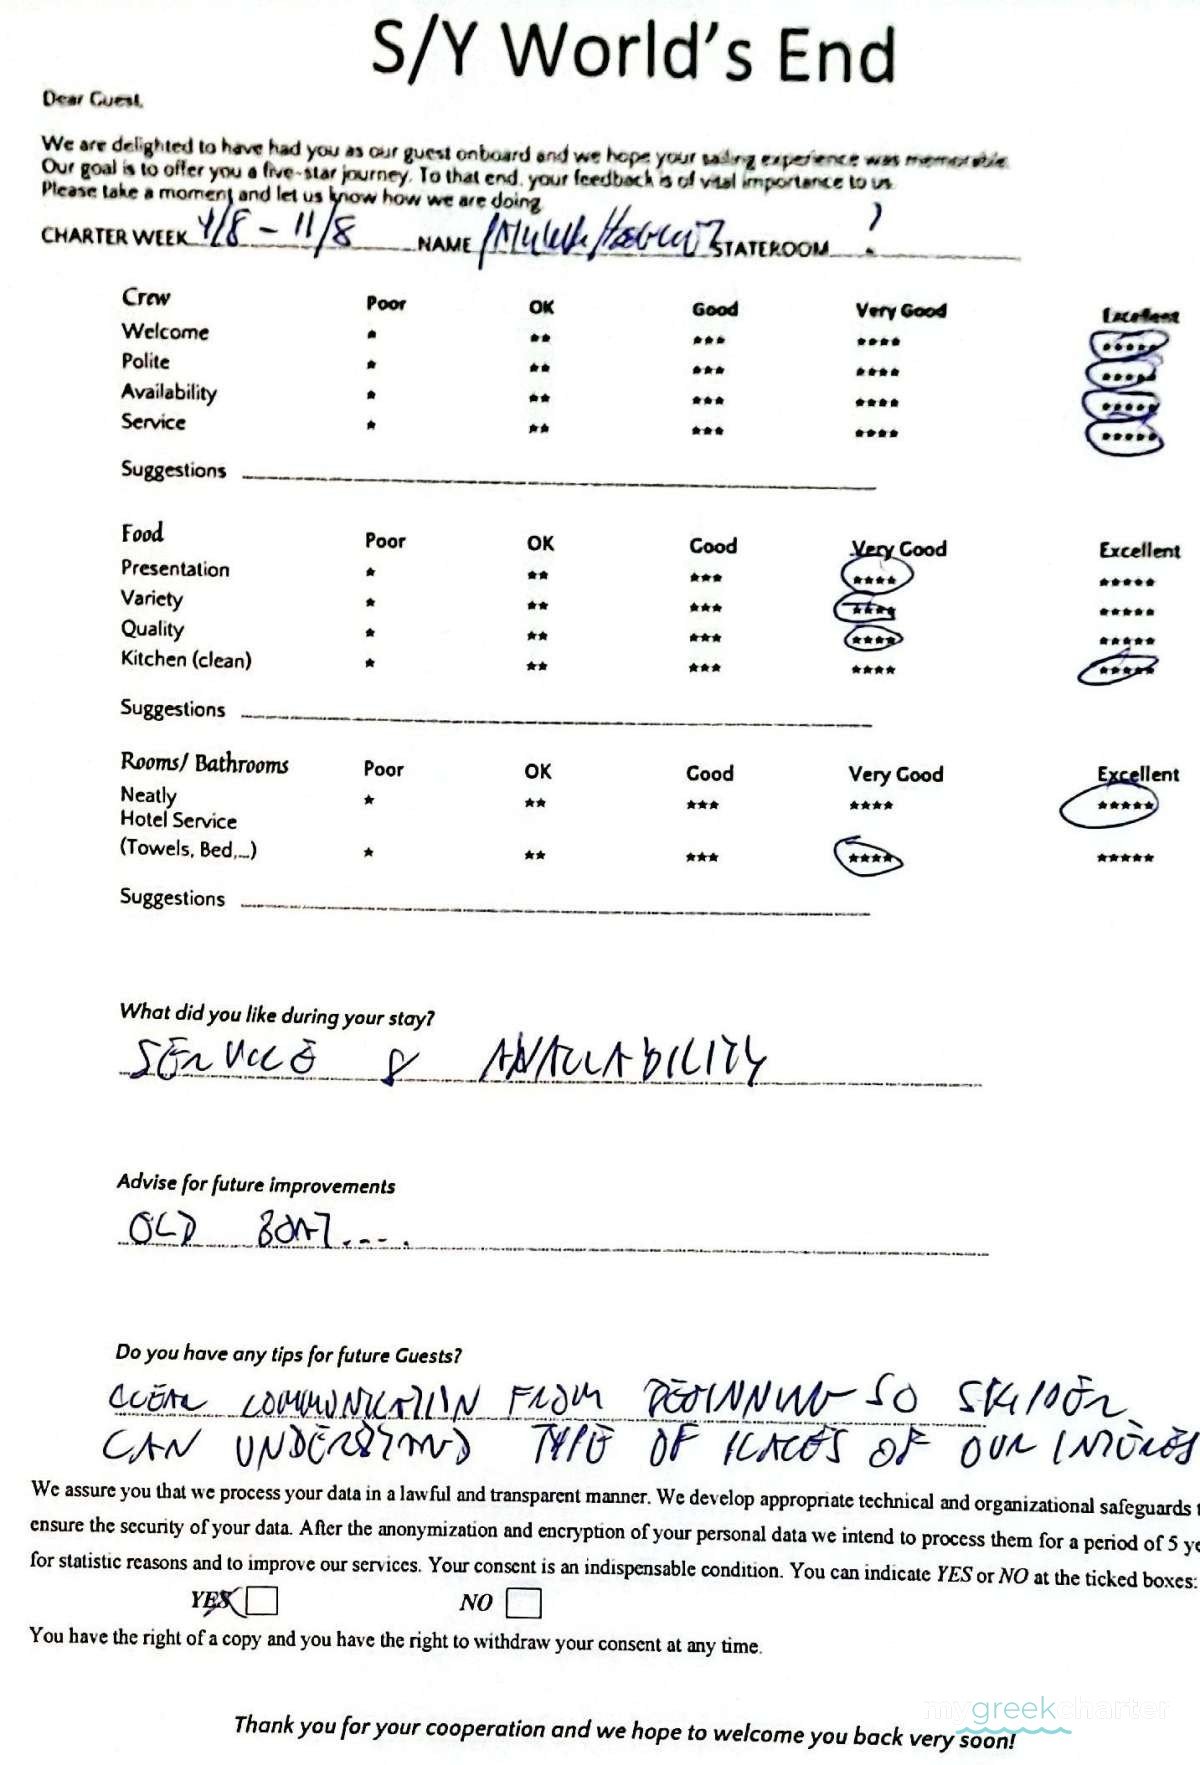 S/Y World's End
Dear Guest,
We are delighted to have had you as our guest onboard and we hope your sailing experience was memorable.
Our goal is to offer you a five-star journey. To that end, your feedback is of vital importance to us.
Please take a moment and let us know how we are doing
CHARTER WEEK 4/8 - 11/8 NAME STATEROOM ?
Crew Poor OK Good Very Good Excellent
Welcome * ** *** **** *****
Polite * ** *** **** *****
Availability * ** *** **** *****
Service * ** *** **** *****
Suggestions
Food Poor OK Good Very Good Excellent
Presentation * ** *** **** *****
Variety * ** *** **** *****
Quality * ** *** **** *****
Kitchen (clean) * ** *** **** *****
Suggestions
Rooms/ Bathrooms Poor OK Good Very Good Excellent
Neatly * ** *** **** *****
Hotel Service
(Towels, Bed,...) * ** *** **** *****
Suggestions
What did you like during your stay?
SERVICE & AVAILABILITY
Advise for future improvements
OLD BOAT....
Do you have any tips for future Guests?
CLEAR COMMUNICATION FROM BEGINNING SO SKIPPER
CAN UNDERSTAND TYPE OF PLACES OF OUR INTERES
We assure you that we process your data in a lawful and transparent manner. We develop appropriate technical and organizational safeguards t
ensure the security of your data. After the anonymization and encryption of your personal data we intend to process them for a period of 5 ye
for statistic reasons and to improve our services. Your consent is an indispensable condition. You can indicate YES or NO at the ticked boxes:
YES NO
You have the right of a copy and you have the right to withdraw your consent at any time.
mygreekcharter
Thank you for your cooperation and we hope to welcome you back very soon!